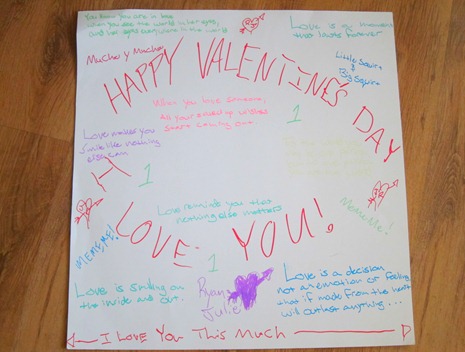 You know you are in love
when you see the world in her eyes,
and her eyes everywhere in the world
Love is a moment
that lasts forever
Mucho y Mucho
Little Squirt
&
Big Squirt
HAPPY VALENTINE'S DAY
When you love someone,
All your saved up wishes
Start coming out.
1
Love makes you
Smile like nothing
else can
1
I
LOVE YOU!
Love reminds you that
nothing else matters
MEMEME!
MeMeMe!
1
Love is smiling on
the inside and out.
Ryan
Julie
Love is a decision
not an emotion or feeling
that if made from the heart
will outlast anything...
I Love You This Much